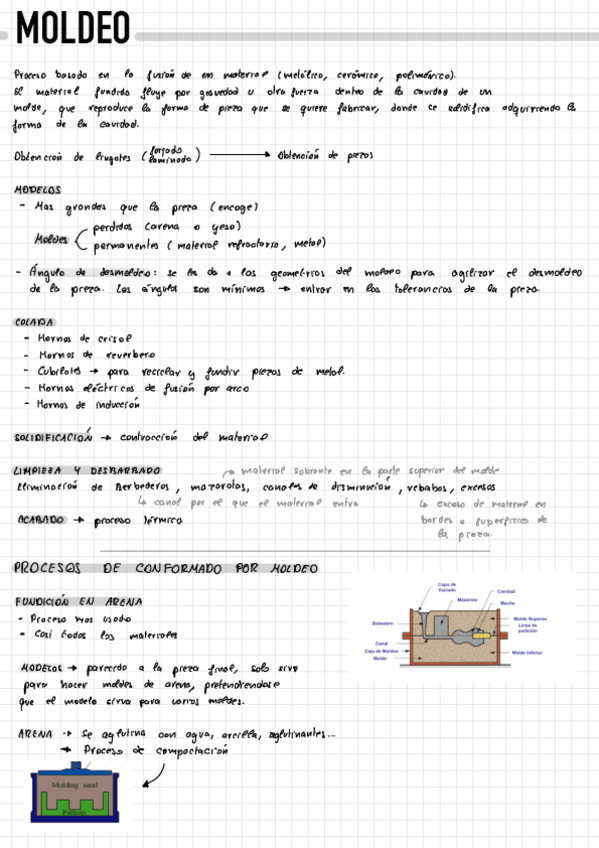 MOLDEO
Proceso basado en la fusión de un material (metálico, cerámico, polimérico).
El material fundido fluye por gravedad u otra fuerza dentro de la cavidad de un
molde, que reproduce la forma de pieza que se quiere fabricar, donde se solidifica adquiriendo la
forma de la cavidad.
Obtención de lingotes (forjado laminado) → Obtención de piezas
MODELOS
- Mas grandes que la pieza (encoge)
Moldes < perdidos (arena o yeso)
permanentes (material refractario, metal)
- Ángulo de desmoldeo: se les da a las geometrías del moldeo para agilizar el desmoldeo
de la pieza. Los ángulos son mínimos → entrar en las tolerancias de la pieza.
COLADA
- Hornos de crisol
- Hornos de reverbero
- Cubilotes → para reciclar y fundir piezas de metal.
- Hornos eléctricos de fusión por arco
- Hornos de inducción
SOLIDIFICACIÓN → contracción del material
LIMPIEZA Y DESBARBADO
→ material sobrante en la parte superior del molde
Eliminación de bebederos, mazarotas, canales de disminución, rebabas, excesos
↳ canal por el que el material entra
↳ exceso de material en
bordes o superficies de
la pieza.
ACABADO → proceso térmico
PROCESOS DE CONFORMADO POR MOLDEO
FUNDICIÓN EN ARENA
- Proceso mas usado
- Casi todos los materiales
Copa de Vaciado
Mazarota
Cavidad
Macho
Bebedero
Molde Superior
Línea de partición
Canal
Caja de Moldeo
Molde
Molde Inferior
MODELOS → parecido a la pieza final, solo sirve
para hacer moldes de arena, pretendiendose
que el modelo sirva para varios moldes.
ARENA → Se aglutina con agua, arcilla, aglutinantes...
→ Proceso de compactación
Molding sand
Pattern